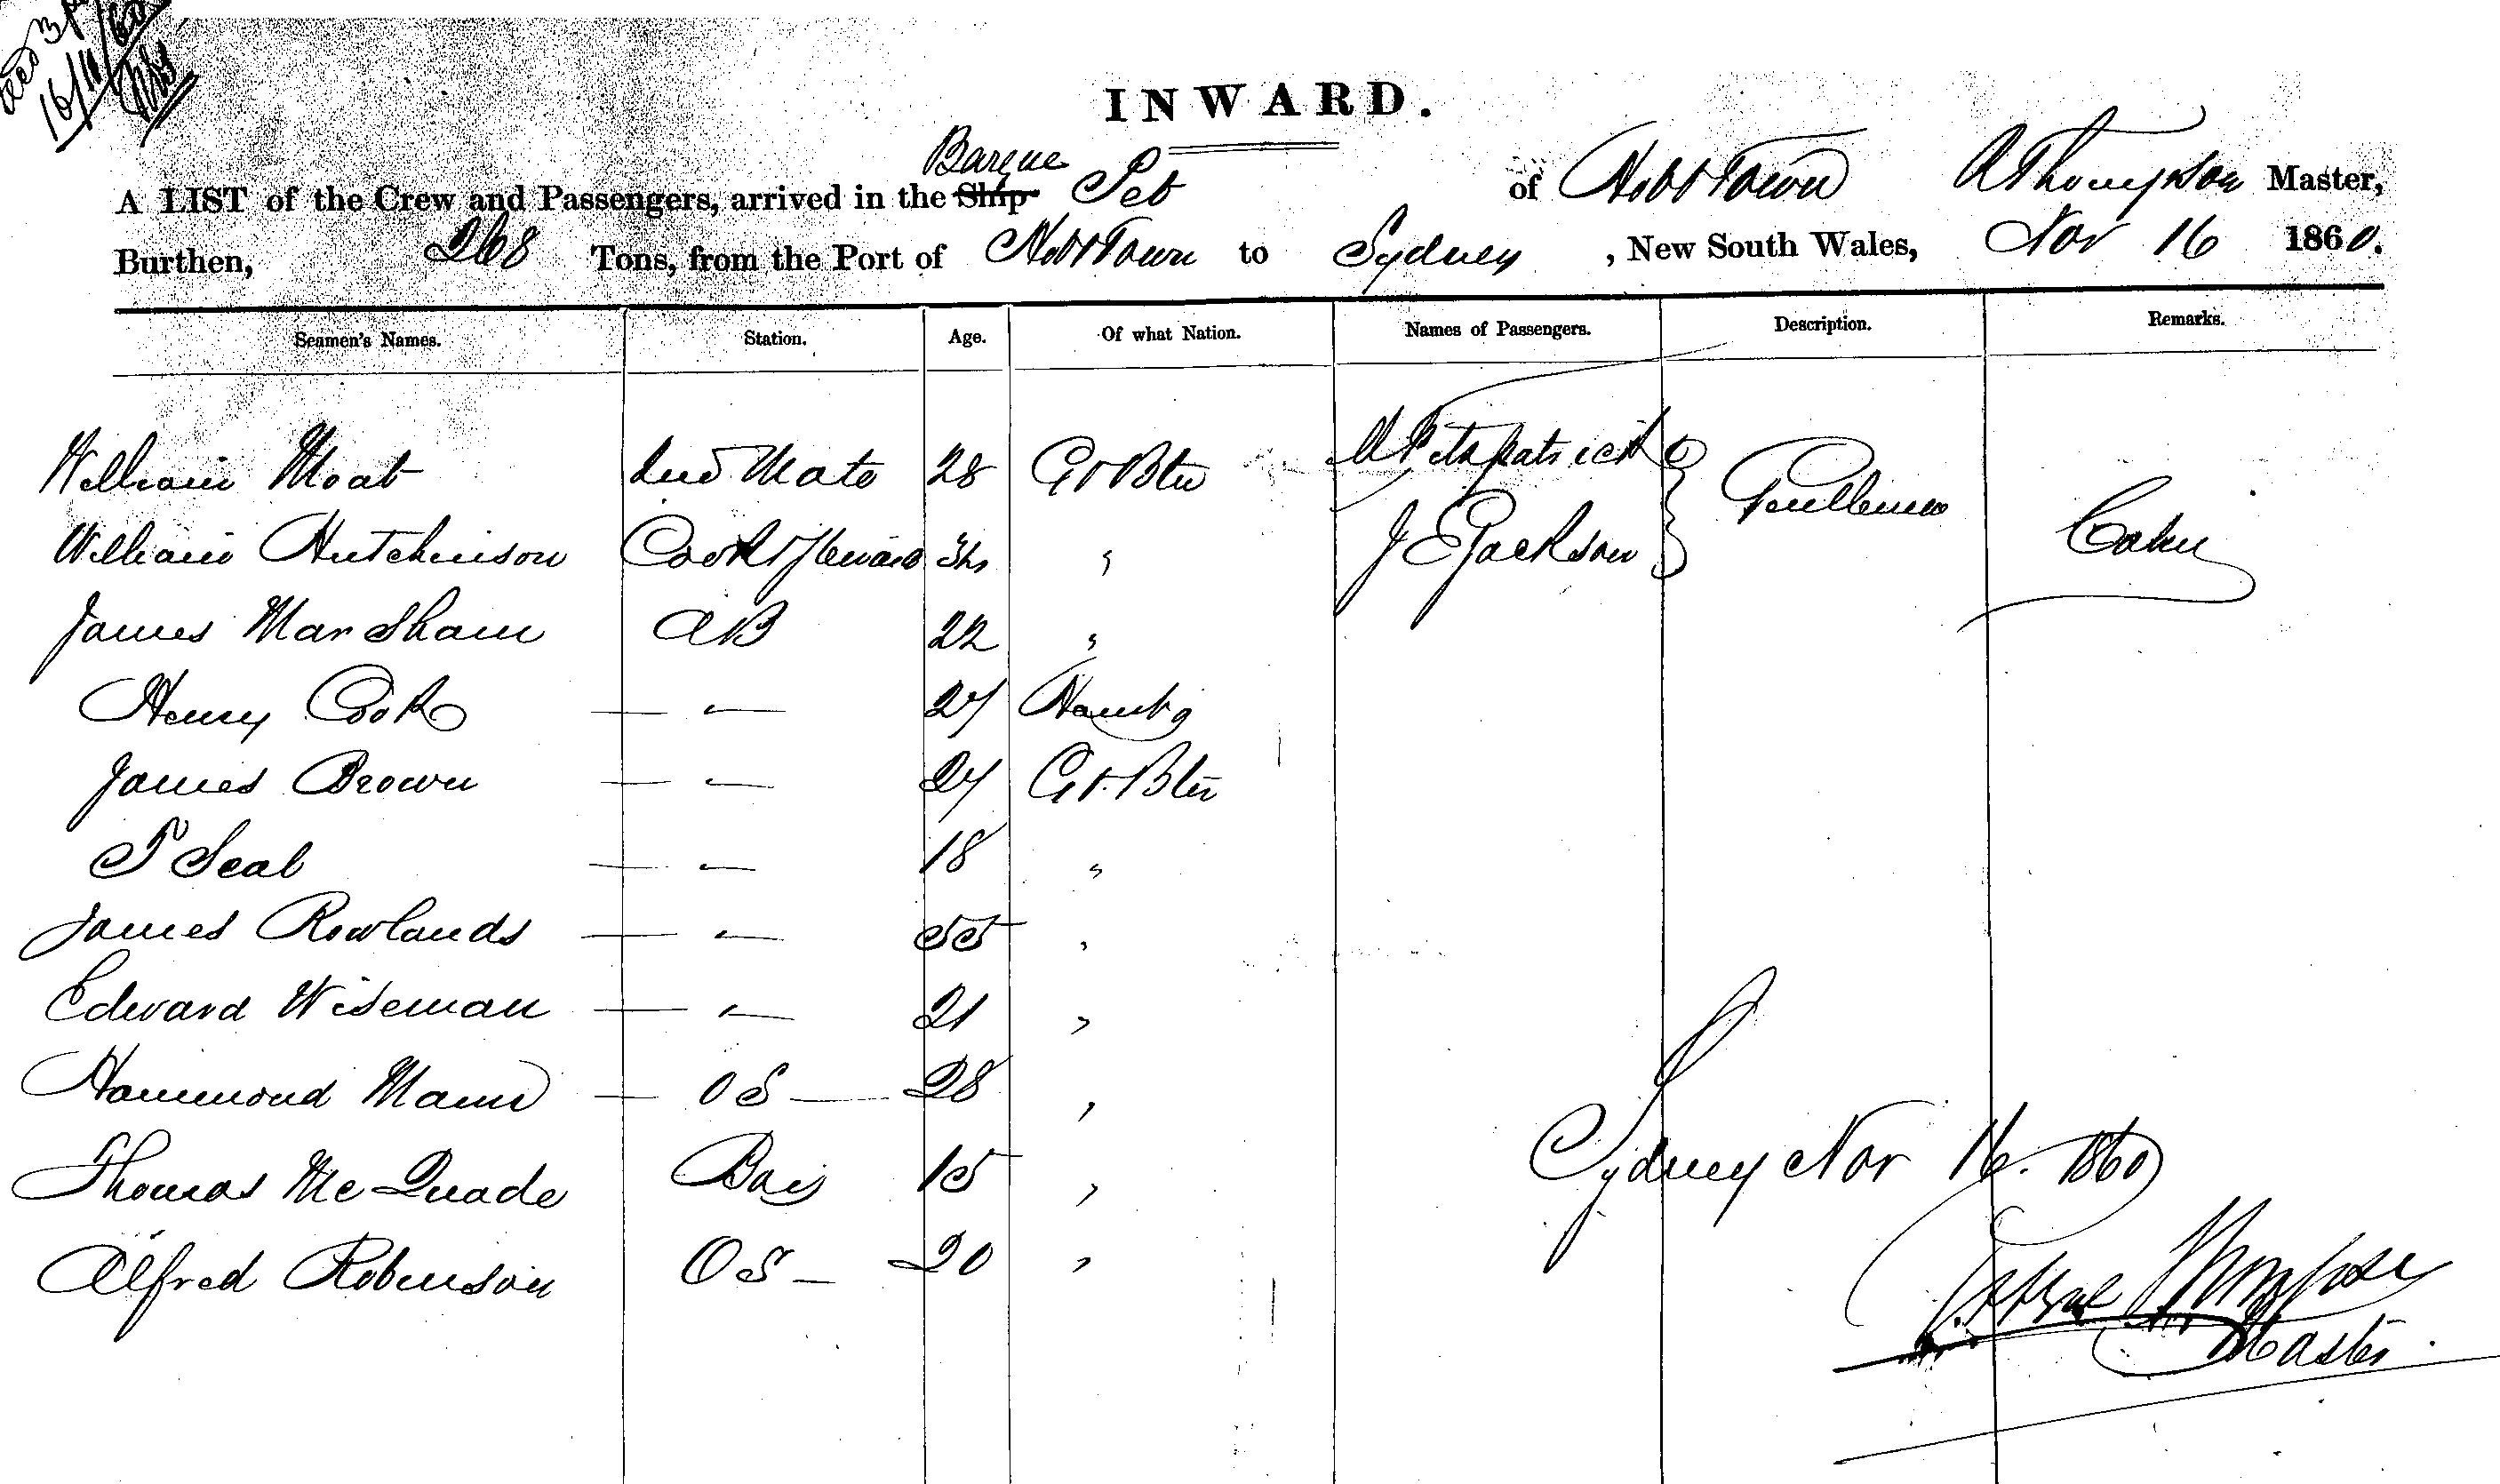 16/11/60
INWARD.
Barque
A LIST of the Crew and Passengers, arrived in the Ship Pet of Hobt Town A Thompson Master,
Burthen, 268 Tons, from the Port of Hobt Town to Sydney, New South Wales, Nov 16 1860.
Seamen's Names. Station. Age. Of what Nation. Names of Passengers. Description. Remarks.
William Moat Mate 28 Gt Btn M Fitzpatrick
William Hutchinson Cook & Steward " J E Jackson Gentlemen Cabin
James Marsham AB 22 "
Henry Cook — " — 27 Hambg
James Brown — " — 27 Gt. Btn
T Seal — " — 18 "
James Rowlands — " — 55 "
Edward Wiseman — " — 21 "
Hammond Mann — OS — 28 "
Thomas McQuade Boy 15 "
Alfred Robinson OS — 20 "
Sydney Nov 16. 1860
Thompson
Master.